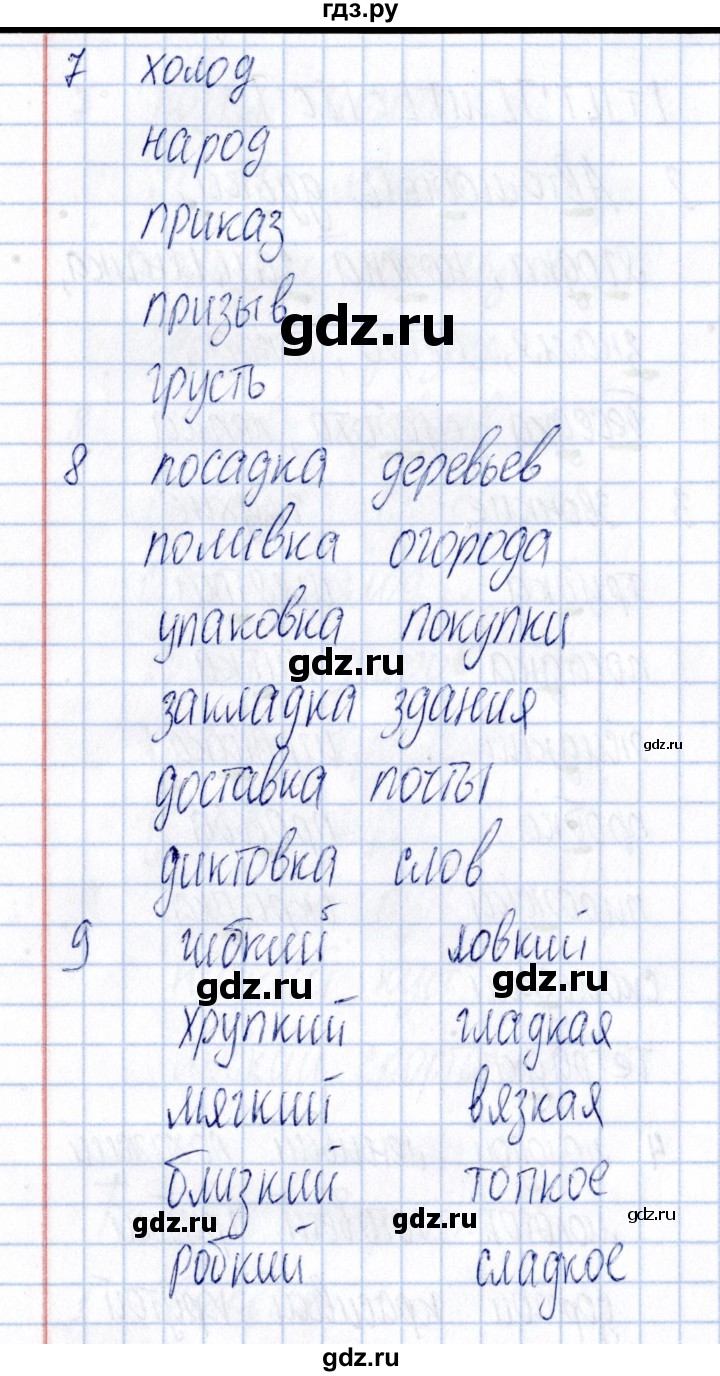 гдз.ру
7 холод
народ
приказ
призыв
gdz.ru
грусть
8 посадка деревьев
поливка огорода
упаковка покупки
gdz.ru
закладка здания
gdz.ru
доставка почты
диктовка слов
9 гибкий ловкий
gdz.ru gdz.ru
хрупкий гладкая
мягкий вязкая
близкий топкое
gdz.ru gdz.ru gdz.ru
робкий сладкое
gdz.ru